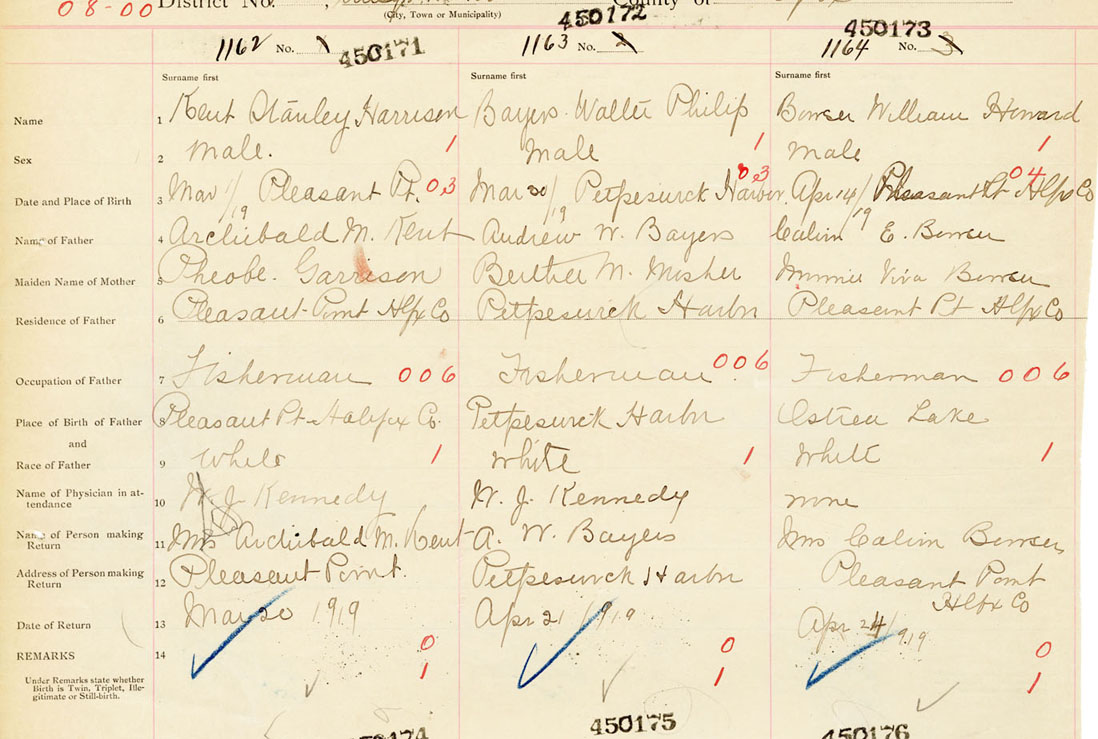 08-00 District No.
(City, Town or Municipality)
450172
450173
1162 No. 1 450171
1163 No. 2
1164 No. 3
Surname first Surname first Surname first
Name 1 Kent Stanley Harrison Bayers Walter Philip Bowser William Howard
Sex 2 Male. 1 Male 1 Male 1
Date and Place of Birth 3 Mar 1/19 Pleasant Pt. 03 Mar 20/19 Petpeswick Harbor 03 Apr 14/19 Pleasant Pt Hlfx Co 04
Name of Father 4 Archibald M. Kent Andrew W. Bayers Calvin E. Bowser
Maiden Name of Mother 5 Pheobe. Garrison Berther M. Mosher Minnie Viva Bowser
Residence of Father 6 Pleasant Point Hlfx Co Petpeswick Harbr Pleasant Pt Hlfx Co
Occupation of Father 7 Fisherman 006 Fisherman 006 Fisherman 006
Place of Birth of Father 8 Pleasant Pt Halifax Co. Petpeswick Harbr Ostrea Lake
and
Race of Father 9 White 1 White 1 White 1
Name of Physician in at-
tendance 10 W. J. Kennedy W. J. Kennedy none
Name of Person making
Return 11 Mrs Archibald M. Kent A. W. Bayers Mrs Calvin Bowser
Address of Person making
Return 12 Pleasant Point. Petpeswick Harbr Pleasant Point
Hlfx Co
Date of Return 13 Mar 20 1919 Apr 21 1919 Apr 24 1919
REMARKS 14 0 0 0
Under Remarks state whether
Birth is Twin, Triplet, Ille-
gitimate or Still-birth. 1 1 1
450174 450175 450176